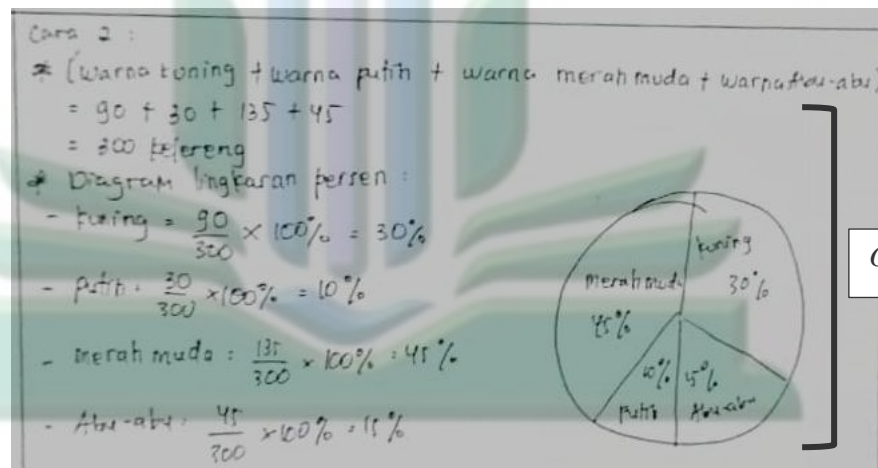 Cara 2 :
* (warna kuning + warna putih + warna merah muda + warna Abu-abu)
= 90 + 30 + 135 + 45
= 300 kelereng
* Diagram lingkaran persen :
- kuning = 90/300 × 100% = 30%
- putih : 30/300 × 100% = 10%
- merah muda : 135/300 × 100% = 45%
- Abu-abu : 45/300 × 100% = 15%
kuning
30%
merah muda
45%
10%
putih
15%
Abu-abu